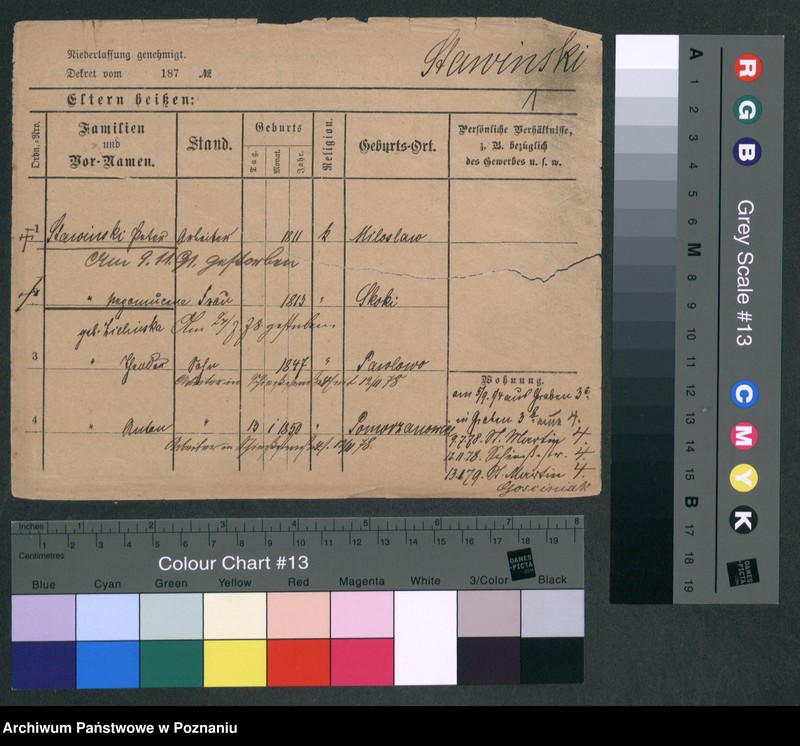 Niederlassung genehmigt.
Dekret vom 187 №
Stawinski
1
Eltern heißen:
Ordn.-Nro.
Familien
und
Vor-Namen.
Stand.
Geburts
Tag.
Monat.
Jahr.
Religion.
Geburts-Ort.
Persönliche Verhältnisse,
z. B. bezüglich
des Gewerbes u. s. w.
1 Stawinski Peter Arbeiter 1811 k Miloslaw
Am 9.11. gestorben
" Frau 1813 " Skoki
geb. Zielinska Am 27/7 78 gestorben.
3 " Theodor Sohn 1847 " Pawlowo
Arbeiter in 12/11 78
4 " Anton " 13 1 1850 " Pomorzanowo
Arbeiter in 12/11 78.
Wohnung.
am 5/9. 74 aus Graben 3
in Graben 3 aus 4.
9.7.78. St. Martin 4.
12.11.78. 4
St. Martin 4.
Gosciniak
Inches 1 2 3 4 5 6 7 8
Centimetres 1 2 3 4 5 6 7 8 9 10 11 12 13 14 15 16 17 18 19
Colour Chart #13
DANES
PICTA
.COM
Blue Cyan Green Yellow Red Magenta White 3/Color Black
Grey Scale #13
R G B
C M Y K
A 1 2 3 4 5 6 M 8 9 10 11 12 13 14 15 B 17 18 19
DANES
PICTA
.COM
Archiwum Państwowe w Poznaniu